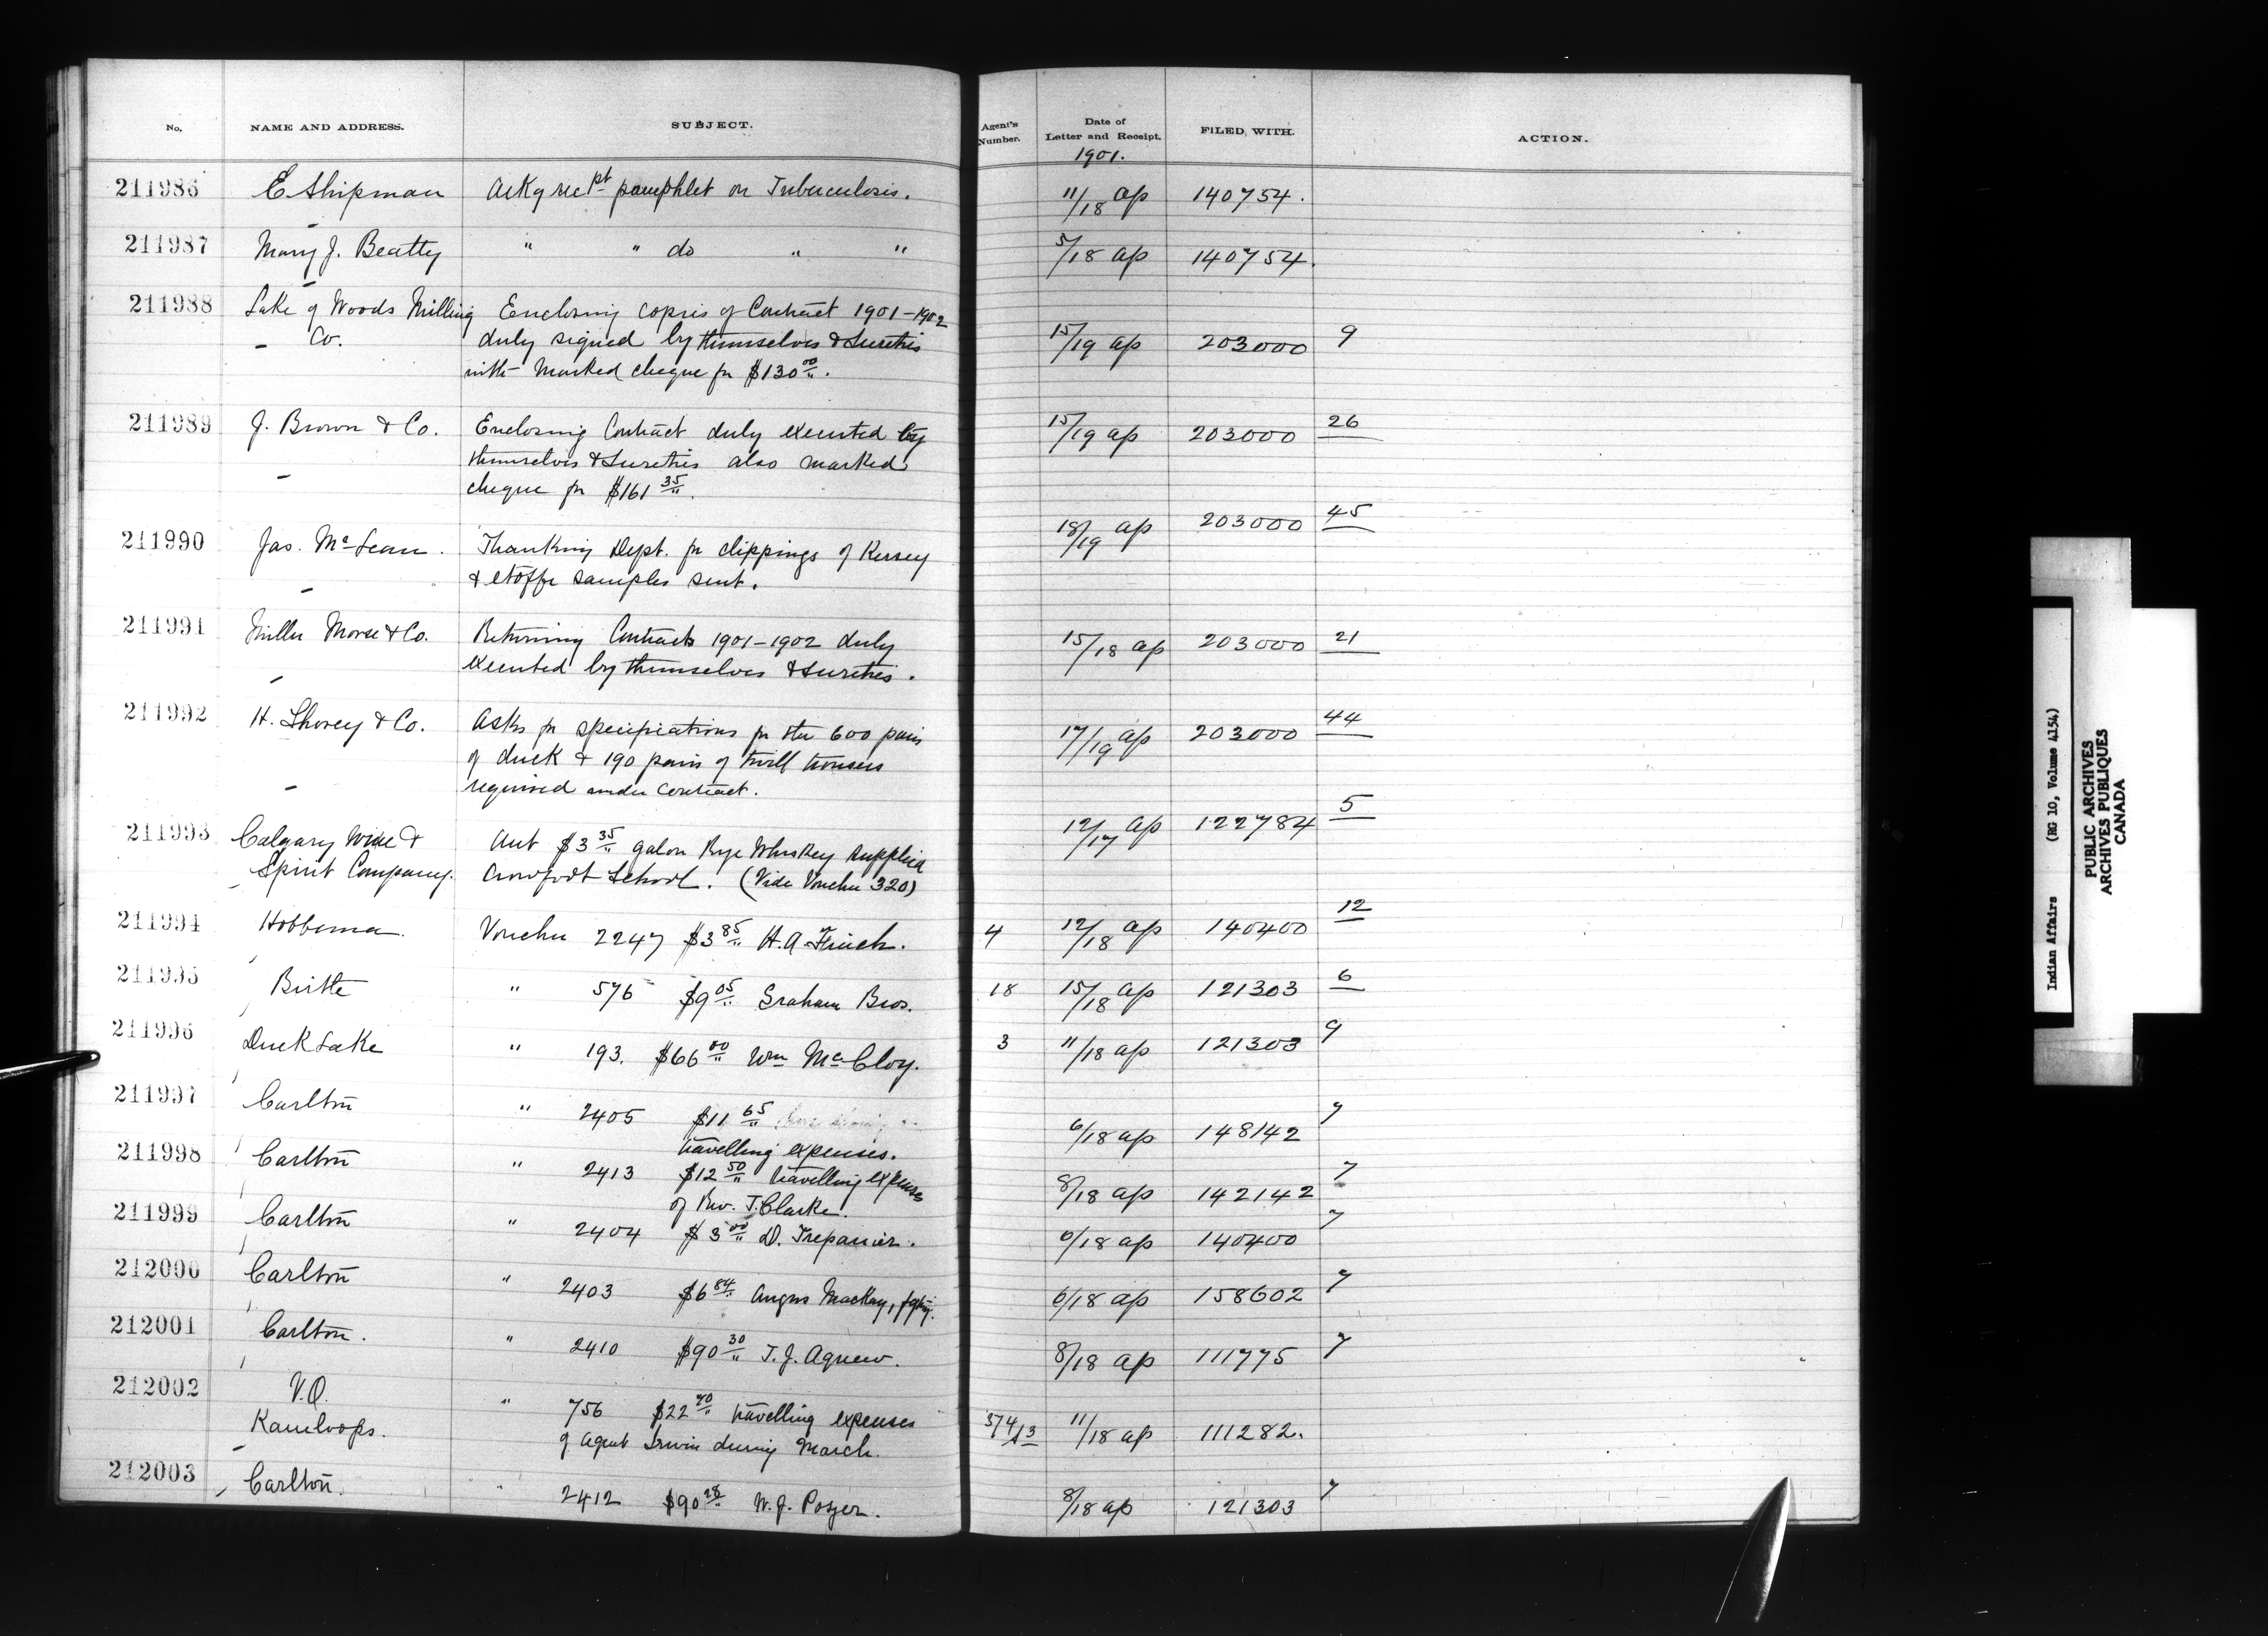 No. NAME AND ADDRESS. SUBJECT. Agent's Number. Date of Letter and Receipt. FILED WITH. ACTION.
1901.
211986 E Shipman Ackg rec pt pamphlet on Tuberculosis. 11/18 ap 140754.
211987 Mary J. Beatty " " do " " 5/18 ap 140754.
211988 Lake of Woods Milling Enclosing copies of Contract 1901-1902
Co. duly signed by themselves & Sureties 15/19 ap 203000 9
with Marked cheque for $130 00.
211989 J. Brown & Co. Enclosing Contract duly executed by 15/19 ap 203000 26
themselves & Sureties also marked
cheque for $161 35.
211990 Jas. McLean. Thanking Dept. for clippings of Kersey 18/19 ap 203000 45
& etoffe samples sent.
211991 Miller Morse & Co. Returning Contracts 1901-1902 duly 15/18 ap 203000 21
executed by themselves & sureties.
211992 H. Shorey & Co. Asks for specifications for the 600 pairs 17/19 ap 203000 44
of duck & 190 pairs of twill trousers
required under contract.
211993 Calgary Wine & Aut $3 35 galon Rye Whiskey supplied 12/17 ap 122784 5
Spirit Company. Crowfoot School. (Vide Voucher 320)
211994 Hobbema. Voucher 2247 $3 85 H. A. Finch. 4 12/18 ap 140400 12
211995 Birtle " 576 $9 05 Graham Bros. 18 15/18 ap 121303 6
211996 Duck Lake " 193. $66 00 Wm McCloy. 3 11/18 ap 121303 9
211997 Carlton " 2405 $11 65 6/18 ap 148142 7
travelling expenses.
211998 Carlton " 2413 $12 50 travelling expenses 8/18 ap 142142 7
of Rev. J. Clarke.
211999 Carlton " 2404 $3 00 D. Trepanier. 6/18 ap 140400 7
212000 Carlton " 2403 $6 84 Angus Mackay, 6/18 ap 158602 7
212001 Carlton. " 2410 $90 30 T. J. Agnew. 8/18 ap 111775 7
212002 V.O. " 756 $22 70 travelling expenses 11/18 ap 111282.
Kamloops. of Agent Irwin during March.
212003 Carlton. " 2412 $90 28 W. J. 8/18 ap 121303 7
Indian Affairs (RG 10, Volume 4154)
PUBLIC ARCHIVES
ARCHIVES PUBLIQUES
CANADA